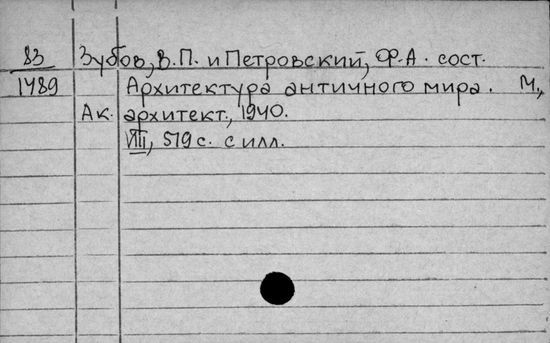 83 Зубов, В.П. и Петровский, Ф.А. сост.
1489 Архитектура античного мира. М.,
Ак. архитект., 1940.
VIII, 519 с. с илл.